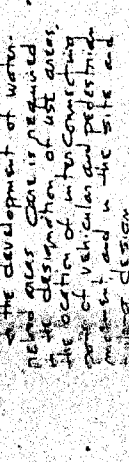 the development of water.
areas care is required
the designation of use areas,
the location of interconnecting
of vehicular and pedestrian
and in the site and
design